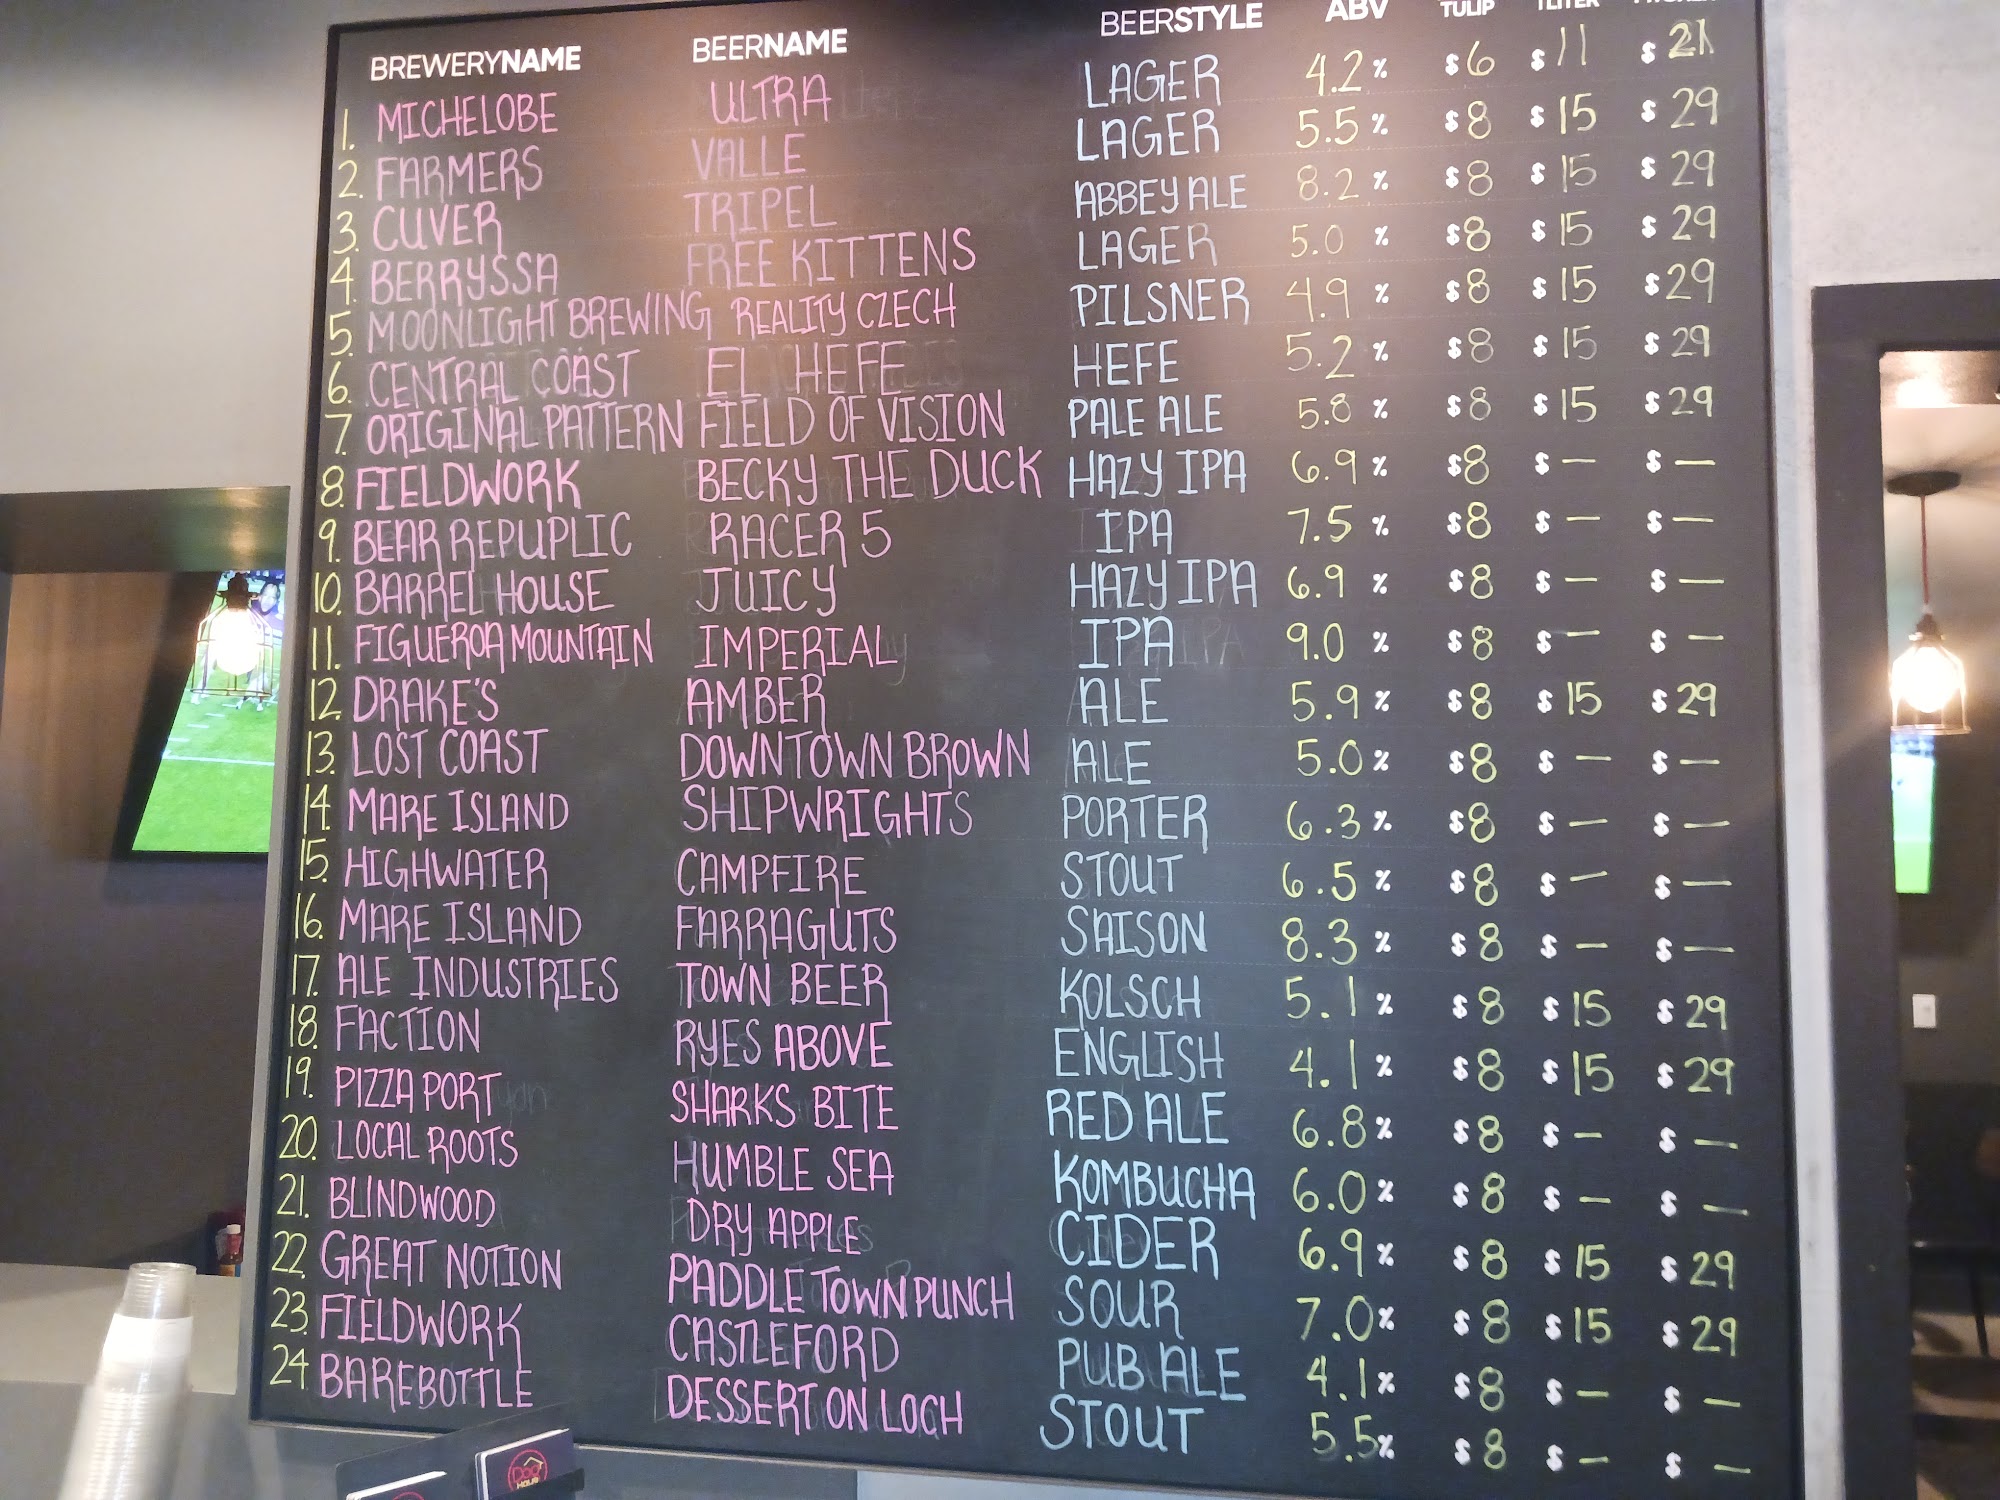 BREWERYNAME BEERNAME BEERSTYLE ABV TULIP 1LITER
1. MICHELOBE ULTRA LAGER 4.2% $6 $11 $21
2. FARMERS VALLE LAGER 5.5% $8 $15 $29
3. CUVER TRIPEL ABBEY ALE 8.2% $8 $15 $29
4. BERRYSSA FREE KITTENS LAGER 5.0% $8 $15 $29
5. MOONLIGHT BREWING REALITY CZECH PILSNER 4.9% $8 $15 $29
6. CENTRAL COAST EL HEFE HEFE 5.2% $8 $15 $29
7. ORIGINAL PATTERN FIELD OF VISION PALE ALE 5.8% $8 $15 $29
8. FIELDWORK BECKY THE DUCK HAZY IPA 6.9% $8 $— $—
9. BEAR REPUPLIC RACER 5 IPA 7.5% $8 $— $—
10. BARREL HOUSE JUICY HAZY IPA 6.9% $8 $— $—
11. FIGUEROA MOUNTAIN IMPERIAL IPA 9.0% $8 $— $—
12. DRAKE'S AMBER ALE 5.9% $8 $15 $29
13. LOST COAST DOWNTOWN BROWN ALE 5.0% $8 $— $—
14. MARE ISLAND SHIPWRIGHTS PORTER 6.3% $8 $— $—
15. HIGHWATER CAMPFIRE STOUT 6.5% $8 $— $—
16. MARE ISLAND FARRAGUTS SAISON 8.3% $8 $— $—
17. ALE INDUSTRIES TOWN BEER KOLSCH 5.1% $8 $15 $29
18. FACTION RYES ABOVE ENGLISH 4.1% $8 $15 $29
19. PIZZA PORT SHARKS BITE RED ALE 6.8% $8 $— $—
20. LOCAL ROOTS HUMBLE SEA KOMBUCHA 6.0% $8 $— $—
21. BLINDWOOD DRY APPLE CIDER 6.9% $8 $15 $29
22. GREAT NOTION PADDLE TOWN PUNCH SOUR 7.0% $8 $15 $29
23. FIELDWORK CASTLEFORD PUB ALE 4.1% $8 $— $—
24. BAREBOTTLE DESSERT ON LOCH STOUT 5.5% $8 $— $—
DOG HAUS